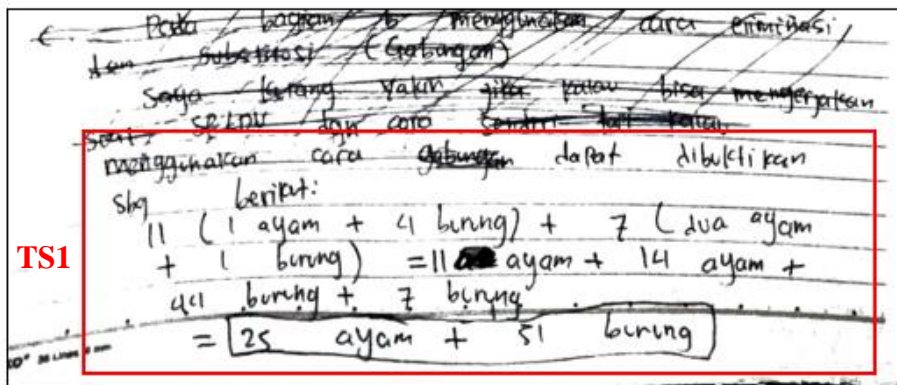 c. Pada bagian b menggunakan cara eliminasi
dan substitusi (Gabungan)
Saya kurang yakin jika kalau bisa mengerjakan
soal SPLDV dgn cara sendiri tapi kalau
menggunakan cara gabungan dapat dibuktikan
sbg berikut:
11 (1 ayam + 4 burung) + 7 (dua ayam
TS1
+ 1 burung) = 11 ayam + 14 ayam +
44 burung + 7 burung
= 25 ayam + 51 burung